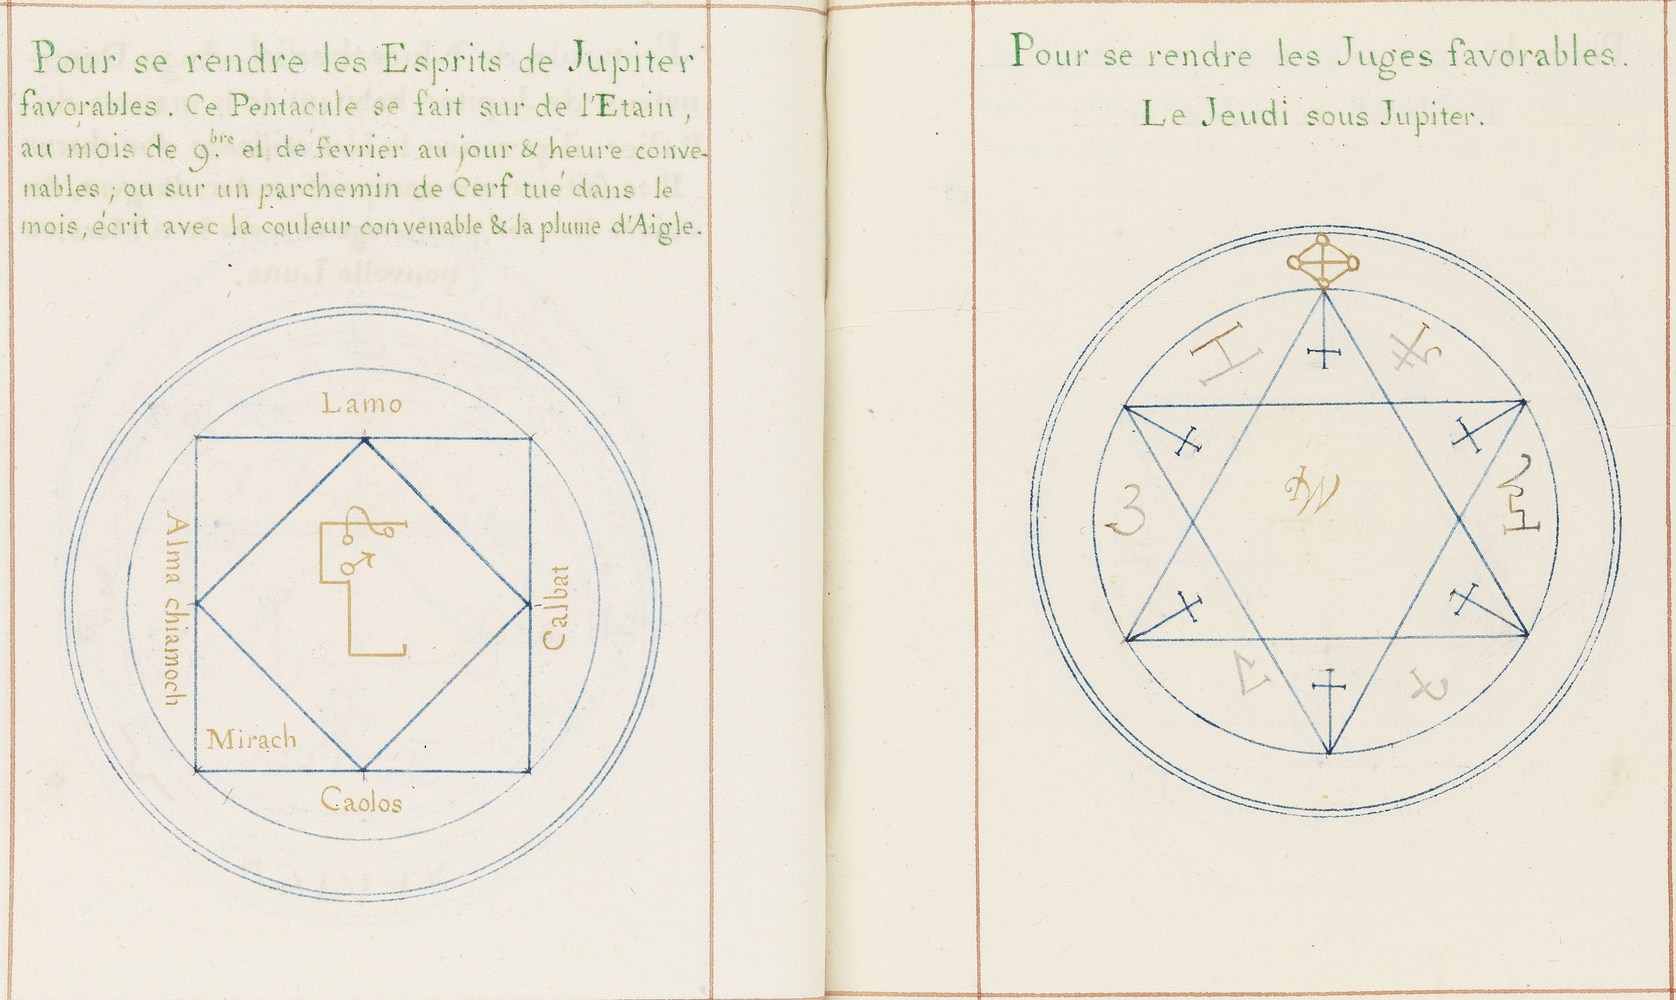 Pour se rendre les Esprits de Jupiter
favorables. Ce Pentacule se fait sur de l'Etain,
au mois de 9.bre et de fevrier au jour & heure conve-
nables; ou sur un parchemin de Cerf tué dans le
mois, écrit avec la couleur convenable & la plume d'Aigle.
Lamo
Alma chiamoch
Calbat
Mirach
Caolos
Pour se rendre les Juges favorables.
Le Jeudi sous Jupiter.